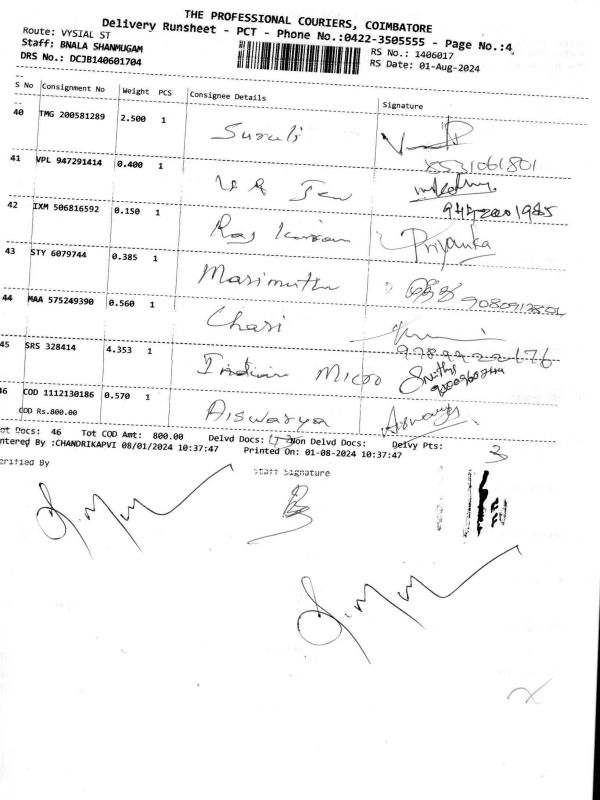 THE PROFESSIONAL COURIERS, COIMBATORE
Delivery Runsheet - PCT - Phone No.:0422-3505555 - Page No.:4
Route: VYSIAL ST
Staff: BNALA SHANMUGAM
DRS No.: DCJB140601704
RS No.: 1406017
RS Date: 01-Aug-2024
S No Consignment No Weight PCS Consignee Details Signature
40 TMG 200581289 2.500 1 Suruli
41 VPL 947291414 0.400 1
42 IXM 506816592 0.150 1 Raj Kiran Priyanka
43 STY 6079744 0.385 1 Marimuthu
44 MAA 575249390 0.560 1 Chari
45 SRS 328414 4.353 1 Indian Micro
46 COD 1112130186 0.570 1 Aiswarya
COD Rs.800.00
Tot Docs: 46 Tot COD Amt: 800.00 Delvd Docs: 43 Non Delvd Docs: Delvy Pts: 3
ntered By :CHANDRIKAPVI 08/01/2024 10:37:47 Printed On: 01-08-2024 10:37:47
erified By Staff Signature